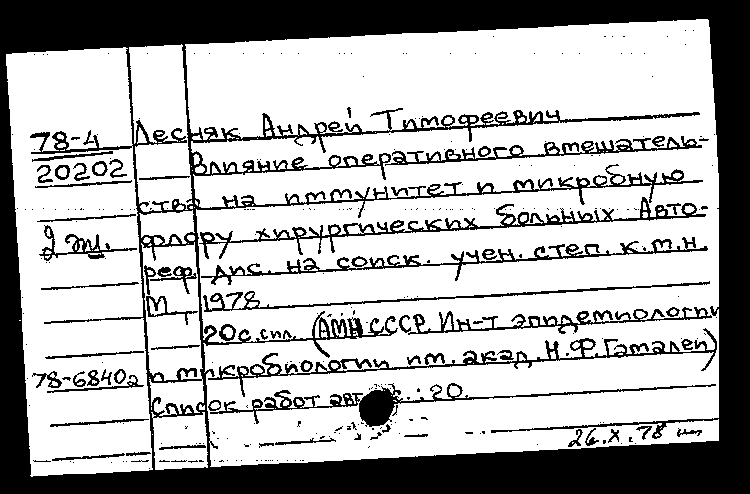 78-4 Лесняк Андрей Тимофеевич
20202 Влияние оперативного вмешатель-
ства на иммунитет и микробную
2 эк. флору хирургических больных. Авто-
реф. дис. на соиск. учен. степ. к.м.н.
М., 1978.
20с. сил. (АМН СССР. Ин-т эпидемиологии
78-6840а и микробиологии им. акад. Н.Ф. Гамалеи)
Список работ авт с.: 20.
26.X.78